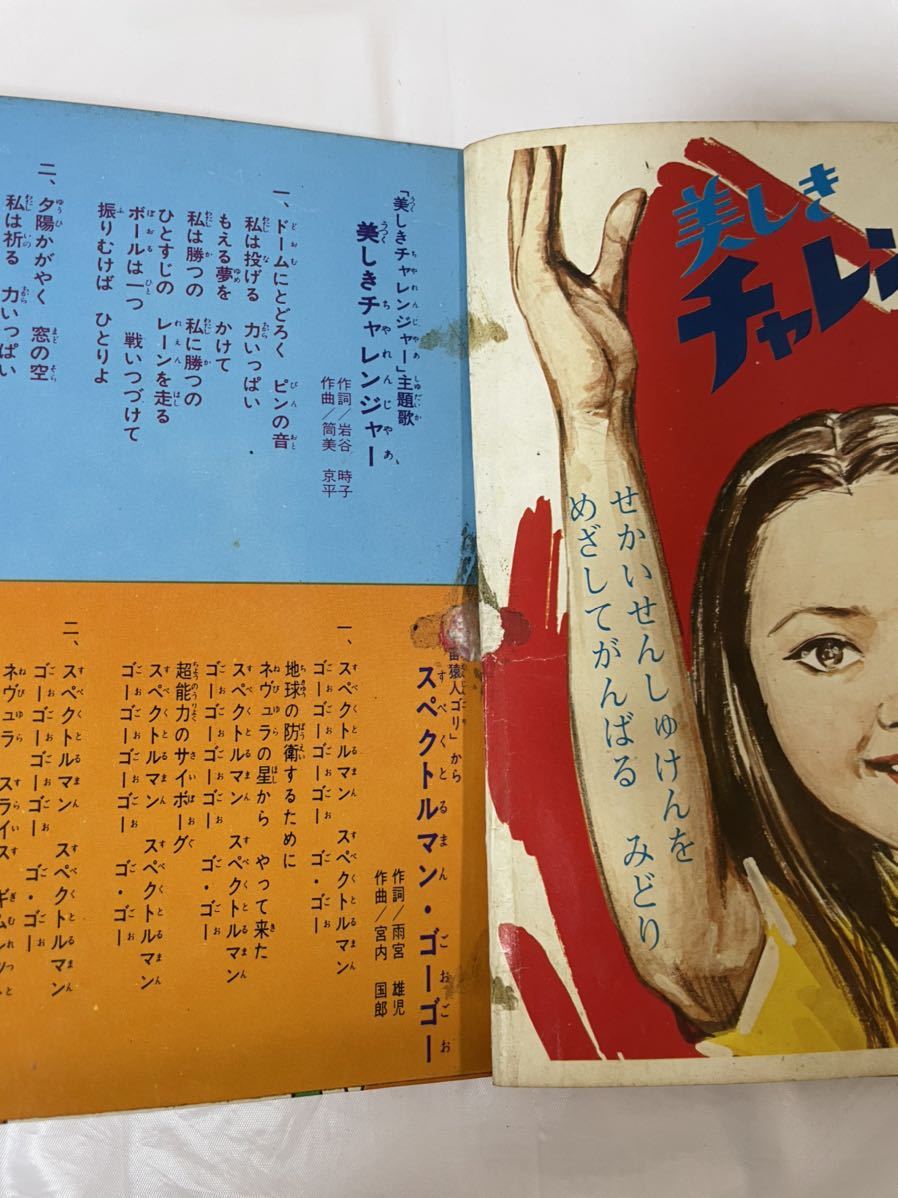 美しき
チャレン
せかいせんしゅけんを
めざしてがんばる みどり
「美しきチャレンジャー」主題歌
美しきチャレンジャー
作詞/岩谷 時子
作曲/筒美 京平
一、ドームにとどろく ピンの音
私は投げる 力いっぱい
もえる夢を かけて
私は勝つの 私に勝つの
ひとすじの レーンを走る
ボールは一つ 戦いつづけて
振りむけば ひとりよ
二、夕陽かがやく 窓の空
私は祈る 力いっぱい
猿人ゴリ」から
スペクトルマン・ゴーゴー
作詞/雨宮 雄児
作曲/宮内 国郎
一、スペクトルマン スペクトルマン
ゴーゴーゴーゴー ゴ・ゴー
地球の防衛するために
ネヴュラの星から やって来た
スペクトルマン スペクトルマン
ゴーゴーゴーゴー ゴ・ゴー
超能力のサイボーグ
スペクトルマン スペクトルマン
ゴーゴーゴーゴー ゴ・ゴー
二、スペクトルマン スペクトルマン
ゴーゴーゴーゴー ゴ・ゴー
ネヴュラ スライス